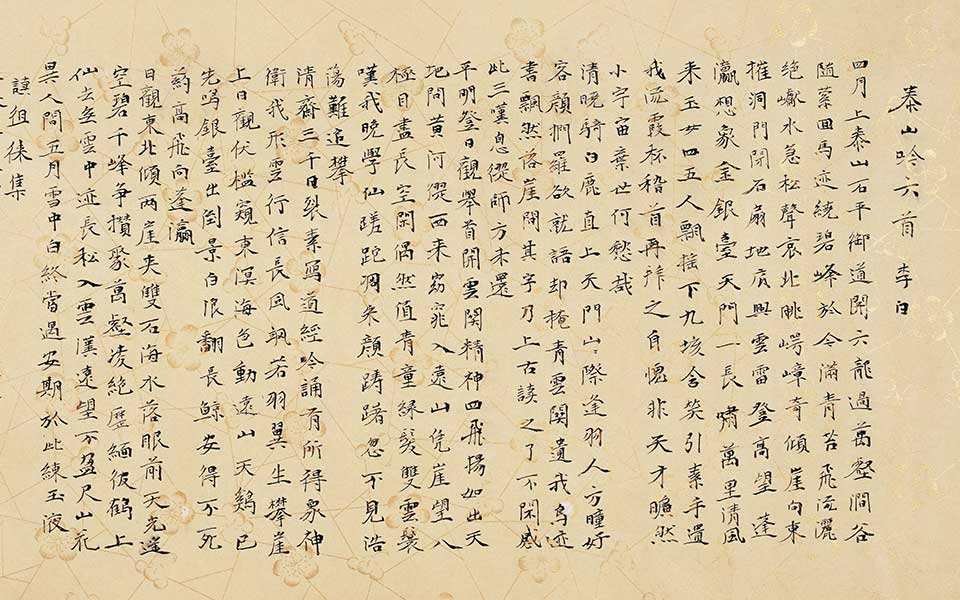 泰山吟六首 李白
四月上泰山石平御道開六龍過萬壑澗谷
隨縈回馬迹繞碧峰於今滿青苔飛流灑
絕巘水急松聲哀北眺崿嶂奇傾崖向東
摧洞門閉石扇地底興雲雷登高望蓬
瀛想象金銀臺天門一長嘯萬里清風
來玉女四五人飄搖下九垓含笑引素手遺
我流霞杯稽首再拜之自愧非天才曠然
小宇宙棄世何愁哉
清曉騎白鹿直上天門山〻際逢羽人方瞳好
容顏捫蘿欲就語却掩青雲關遺我鳥迹
書飄然落崖間其字乃上古讀之了不閑感
此三嘆息從師方未還
平明登日觀舉首開雲關精神四飛揚如出天
地間黃河從西來窈窕入遠山凭崖望八
極目盡長空閑偶然值青童綠髮雙雲鬟
嘆我晚學仙蹉跎凋朱顏躊躇忽不見浩
蕩難追攀
清齋三千日裂素寫道經吟誦有所得眾神
衛我形雲行信長風颯若羽翼生攀崖
上日觀伏檻窺東溟海色動遠山天鷄已
先鳴銀臺出倒景白浪翻長鯨安得不死
葯高飛向蓬瀛
日觀東北傾兩崖夾雙石海水落眼前天光遙
空碧千峰爭攢聚萬壑凌絕歷緬彼鶴上
仙去無雲中迹長松入雲漢遠望不盈尺山花
異人間五月雪中白終當遇安期於此練玉液
徂徠集